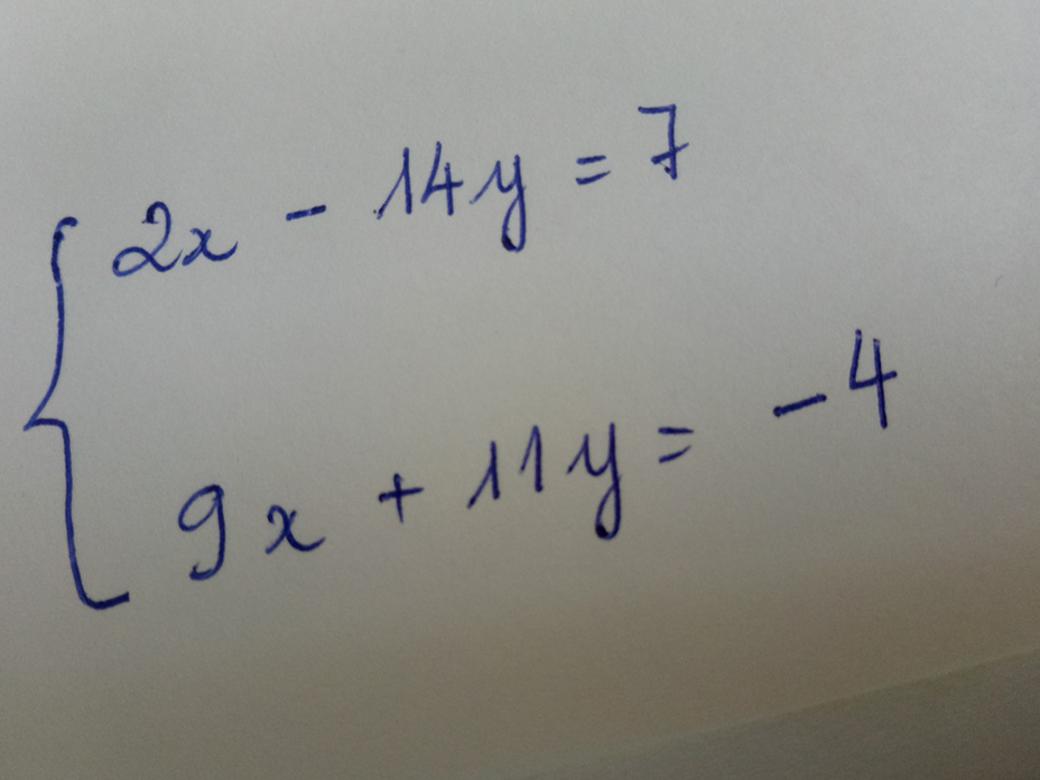 2x - 14y = 7
9x + 11y = -4